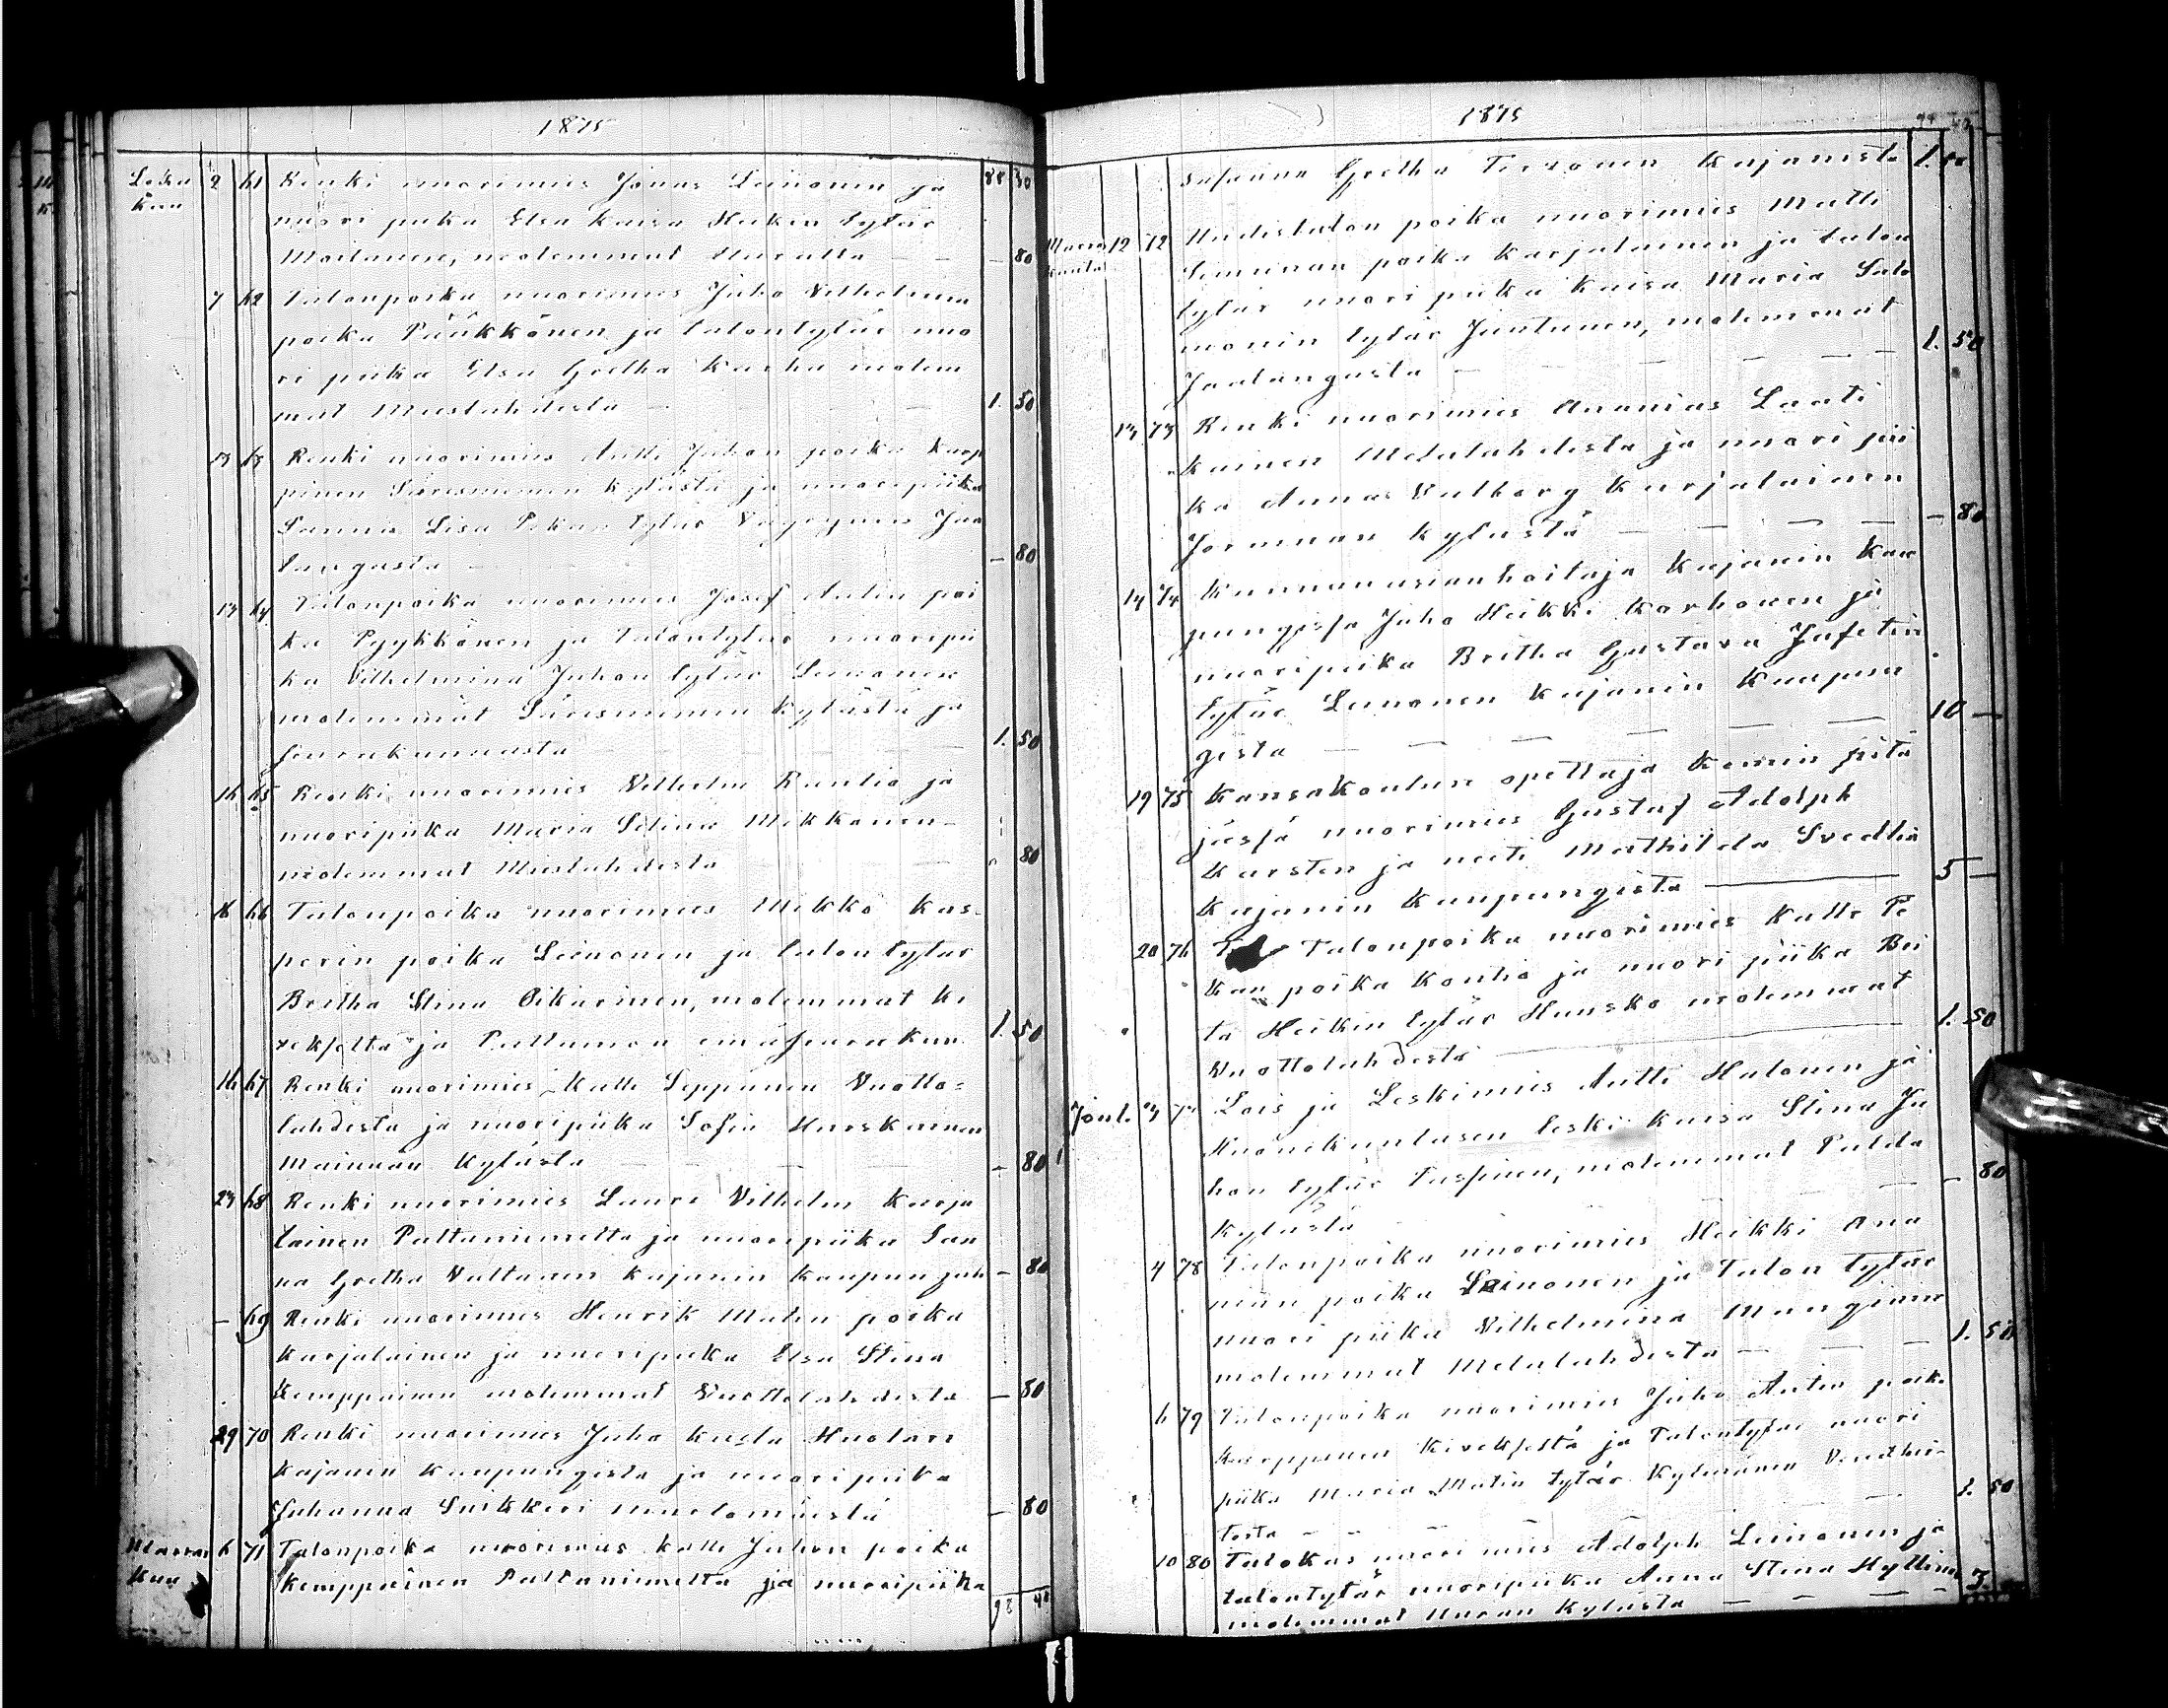 1875
Loka kuu 2 61 Renki nuorimies Jonas Leinonen ja 88 30
nuori piika Elsa Kaisa Heikin tytär
Moilanen, molemmat — — 80
7 62 Talonpoika nuorimies Juho Vilhelmin
poika Pääkkönen ja talontytär nuo
ri piika Elsa Gretha Karhu molem
mat Mieslahdesta — — 1. 50
13 63 Renki nuorimies Antti Juhon poika Karp
pinen Säresniemen kylästä ja nuoripiika
Sanna Lisa Pekan tytär Väyrynen Jaa
langasta — 80
13 64 Talonpoika nuorimies Josef Antin poi
ka Pyykkönen ja Talontytär nuoripii
ka Vilhelmina Juhon tytär Leinonen
molemmat Säresniemen kylästä ja
seurakunnasta 1. 50
16 65 Renki nuorimies Vilhelm Rautio ja
nuoripiika Maria Selina Mikkonen
molemmat Mieslahdesta 80
16 66 Talonpoika nuorimies Mikko Kas-
perin poika Leinonen ja talontytär
Britha Stina Oikarinen, molemmat Ki
vekseltä ja Paltamon emäseurakun. 1. 50
16 67 Renki nuorimies Kalle Seppänen Vuotto=
lahdesta ja nuoripiika Sofia Huoskonen
Mainuan kylästä — — 80
23 68 Renki nuorimies Lauri Vilhelm Karja
lainen Paltaniemeltä ja nuoripiika San
na Gretha Valtanen Kajanin kaupungish — 80
— 69 Renki nuorimies Henrik Matin poika
Karjalainen ja nuoripiika Elsa Stina
Kemppainen molemmat Vuottolahdesta — 80
29 70 Renki nuorimies Juho Kusta Huotari
Kajanin kaupungista ja nuoripiika
Johanna Suikkari — 80
Marras Kuu 6 71 Talonpoika nuorimies Kalle Juhon poika
Kemppainen Paltaniemeltä ja nuoripiika
98 40
1875
Susanna Gretha Tervonen Kajanista 1. 50
Marras kuuta 12 72 Uudistalon poika nuorimies Matti
Simunan poika Karjalainen ja talon
tytär nuori piika Kaisa Maria Salo
monin tytär Juntunen, molemmat
Jaalangasta — — — — 1. 50
13 73 Renki nuorimies Ananias Laati
kainen Melalahdesta ja nuori pii
ka Anna Valborg Karjalainen
Jormuan kylästä — — — — — 80
14 74 Kunnanasianhoitaja Kajanin kau
pungissa Juho Heikki Karhonen ja
nuoripiika Britha Gustava Jafetin
tytär Leinonen Kajanin kaupun
gista — — — — — 10 —
19 75 Kansakoulun opettaja Kemin pitä
jässä nuorimies Gustaf Adolph
Karsten ja neiti Mathilda Svedlin
Kajanin kaupungista — 5 —
20 76 Talonpoika nuorimies Kalle Pe
kan poika Kontio ja nuori piika Bri
ta Heikin tytär Hansko molemmat
Vuottolahdesta — 1. 50
Joul. 3 77 Lois ja Leskimies Antti Halonen ja
Huonekuntasen leski Kaisa Stina Ju
hon tytär molemmat
kylästä — — — 80
4 78 Talonpoika nuorimies Heikki Ana
nian poika Leinonen ja Talon tytär
nuori piika Vilhelmina Manginen
molemmat Melalahdesta — — — 1. 50
6 79 Talonpoika nuorimies Juho Antin poika
Karppinen Kivekseltä ja Talontytär nuori
piika Maria Matin tytär Kylmänen
— — — 1. 50
10 80 Talokas nuori mies Adolph Leinonen ja
talontytär nuoripiika Anna Stina Hyttinen 3
molemmat Uuran kylästä — — —